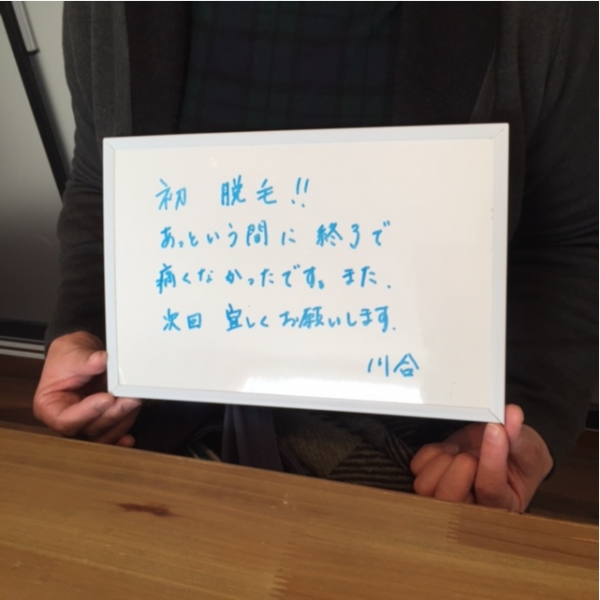 初 脱毛!!
あっという間に 終了で
痛くなかったです。また、
次回 宜しくお願いします。
川合